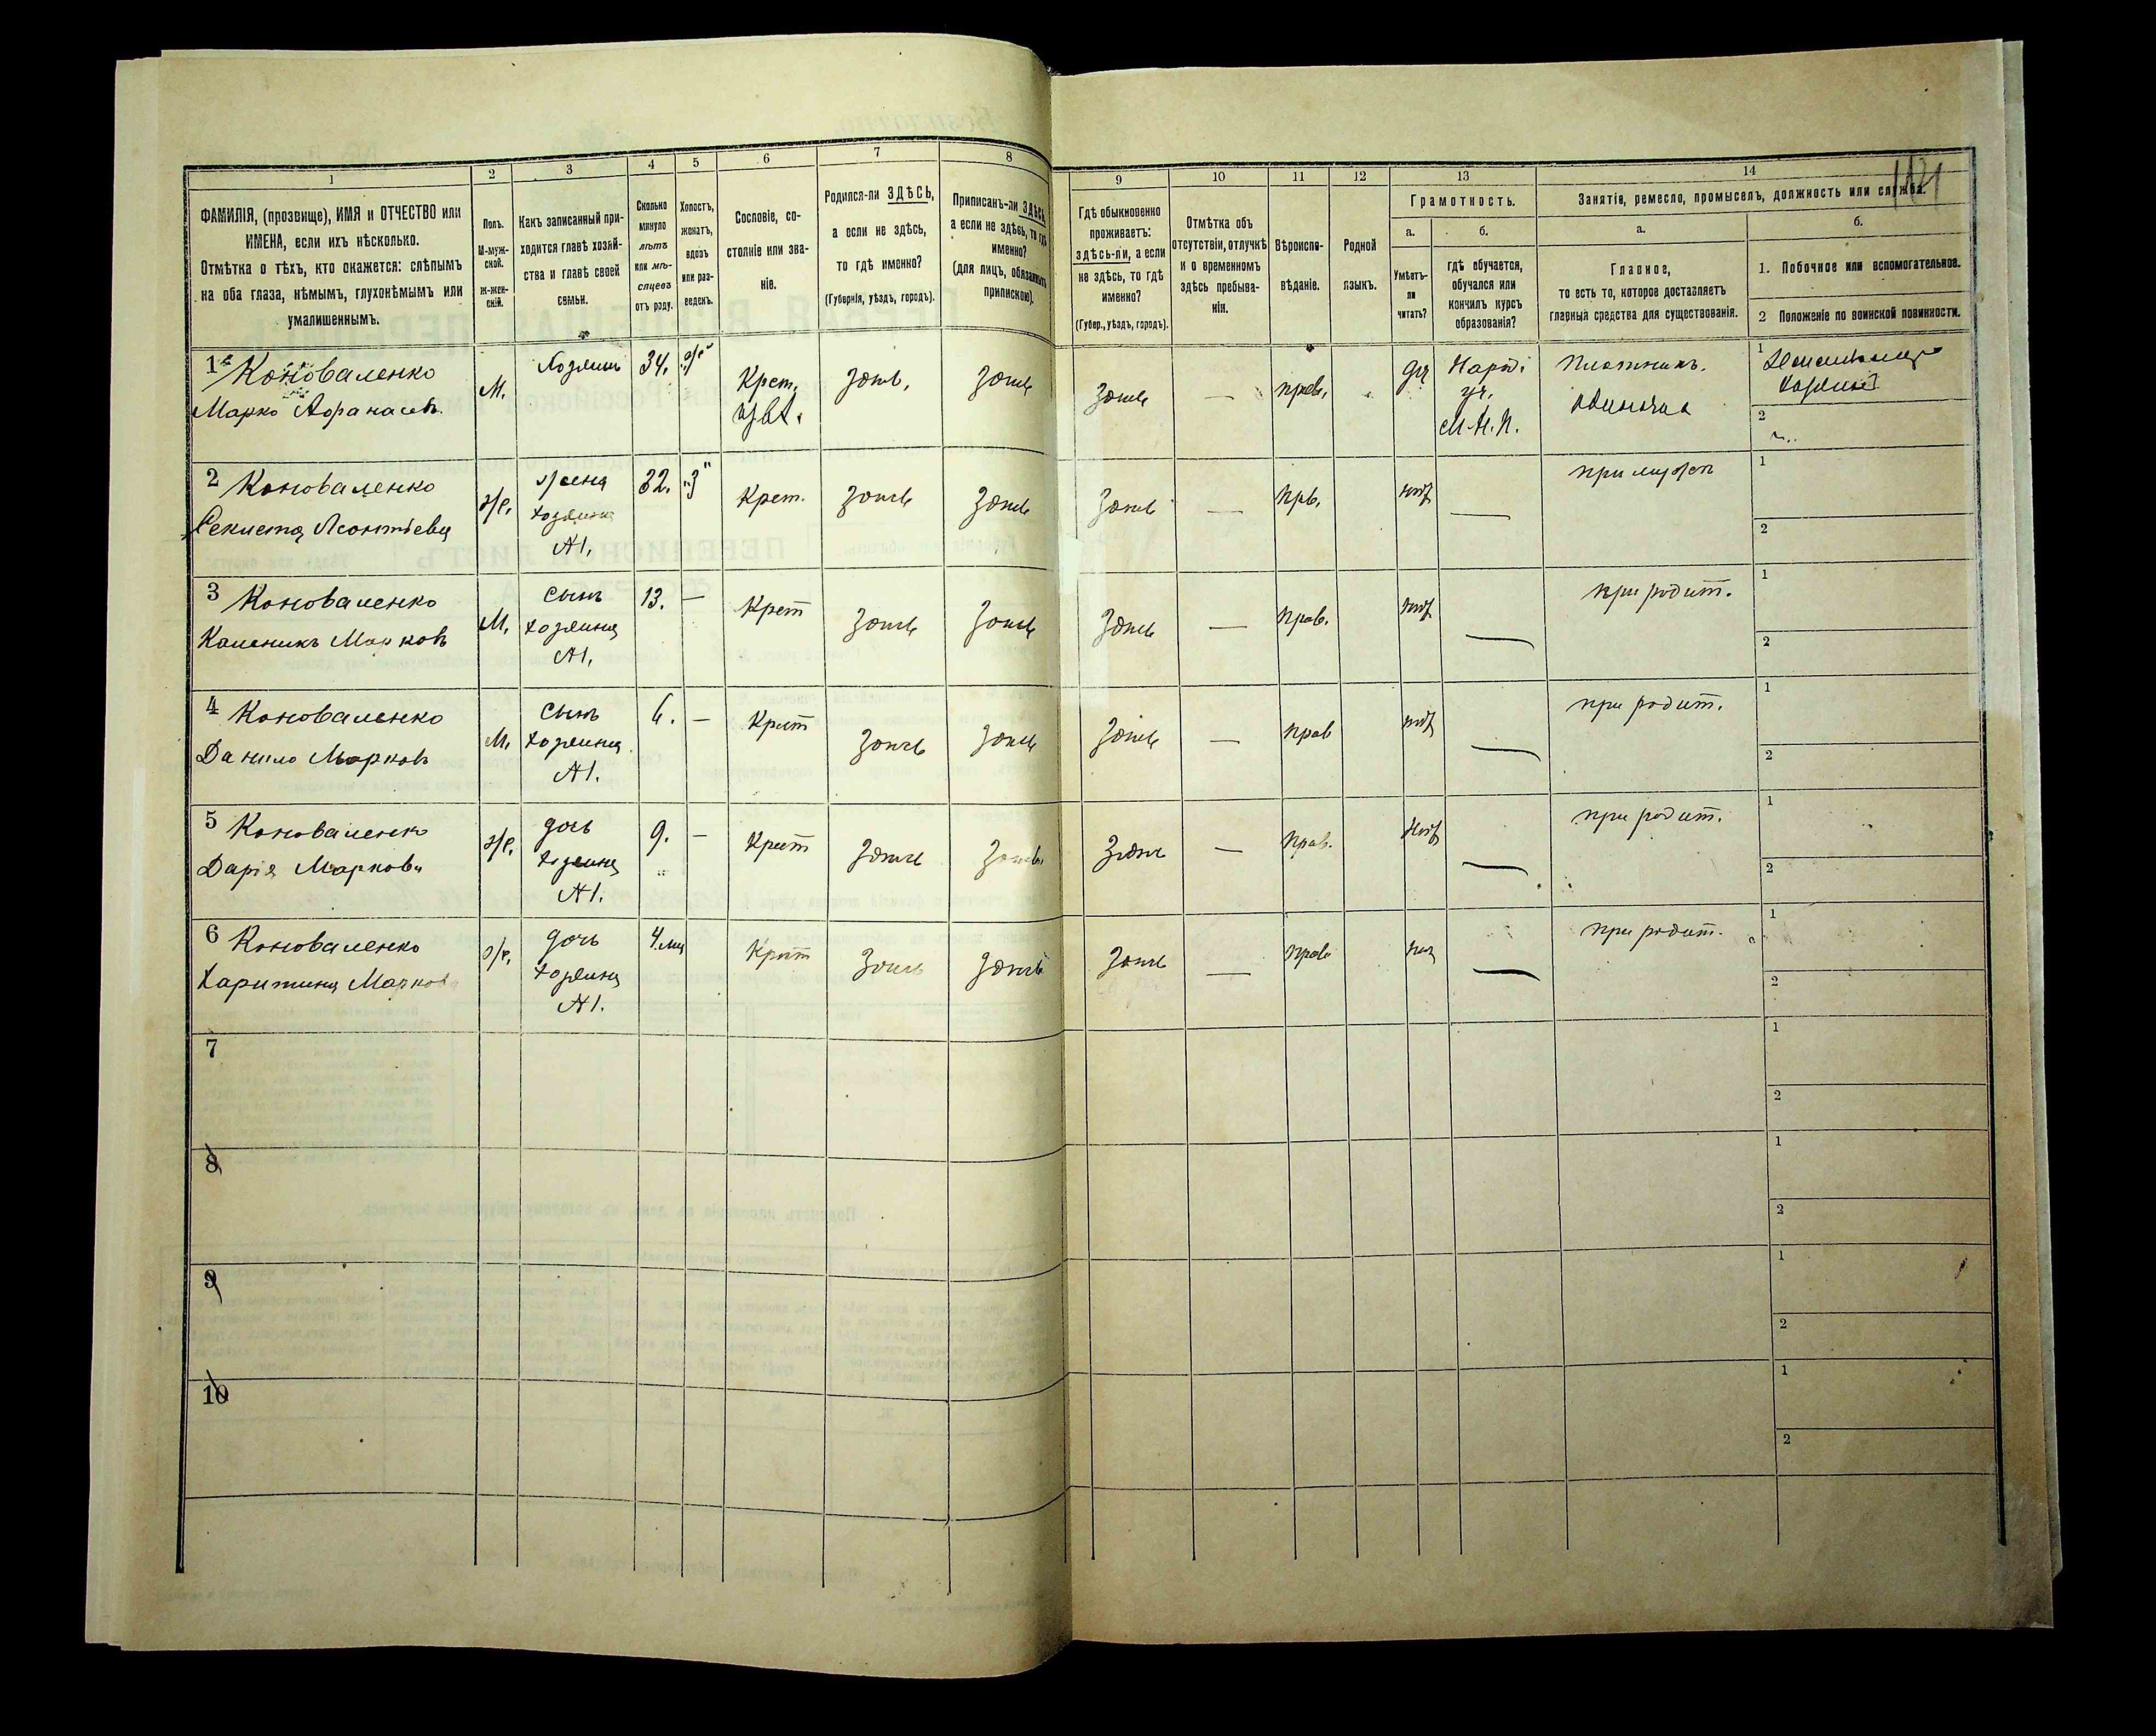 1
ФАМИЛІЯ, (прозвище), ИМЯ и ОТЧЕСТВО или
ИМЕНА, если ихъ нѣсколько.
Отмѣтка о тѣхъ, кто окажется: слѣпымъ
на оба глаза, нѣмымъ, глухонѣмымъ или
умалишеннымъ.
2
Полъ.
М-муж-
ской.
ж-жен-
скій.
3
Какъ записанный при-
ходится главѣ хозяй-
ства и главѣ своей
семьи.
4
Сколько
минуло
лѣтъ
или мѣ-
сяцевъ
отъ роду.
5
Холостъ,
женатъ,
вдовъ
или раз-
веденъ.
6
Сословіе, со-
стояніе или зва-
ніе.
7
Родился-ли ЗДѢСЬ,
а если не здѣсь,
то гдѣ именно?
(Губернія, уѣздъ, городъ).
8
Приписанъ-ли ЗДѢСЬ,
а если не здѣсь, то гдѣ
именно?
(для лицъ, обязанныхъ
припискою).
9
Гдѣ обыкновенно
проживаетъ:
здѣсь-ли, а если
не здѣсь, то гдѣ
именно?
(Губер., уѣздъ, городъ).
10
Отмѣтка объ
отсутствіи, отлучкѣ
и о временномъ
здѣсь пребыва-
ніи.
11
Вѣроиспо-
вѣданіе.
12
Родной
языкъ.
13
Грамотность.
а.
Умѣетъ-
ли
читать?
б.
гдѣ обучается,
обучался или
кончилъ курсъ
образованія?
14
Занятіе, ремесло, промыселъ, должность или служба.
а.
Главное,
то есть то, которое доставляетъ
главныя средства для существованія.
б.
1. Побочное или вспомогательное.
2 Положеніе по воинской повинности.
1
Коноваленко
Марко Афанасьев.
М.
Хозяинъ
34.
Крест.
здѣсь.
здѣсь
здѣсь
—
прав.
да
Народ.
уч.
М.Н.П.
Плотникъ.
1
2
2
Коноваленко
Леонтіева
ж.
жена
хозяина
№1.
32.
з
Крест.
здѣсь
здѣсь
здѣсь
—
Прв.
нѣт
—
при мужѣ
1
2
3
Коноваленко
Каленикъ Марковъ
М.
сынъ
хозяина
№1.
13.
—
Крест
здѣсь
здѣсь
здѣсь
—
Прав.
нѣт
—
при родит.
1
2
4
Коноваленко
Данило Марковъ
М.
сынъ
хозяина
№1.
6.
—
Крест
здѣсь
здѣсь
здѣсь
—
прав
нѣт
—
при родит.
1
2
5
Коноваленко
Дарія Маркова
ж.
дочь
хозяина
№1.
9.
—
Крест
здѣсь
здѣсь
здѣсь
—
Прав.
нѣт
—
при родит.
1
2
6
Коноваленко
Харитина Маркова
ж.
дочь
хозяина
№1.
4.мц
Крест
здѣсь
здѣсь
здѣсь
—
прав
—
при родит.
1
2
7
1
2
8
1
2
9
1
2
10
1
2